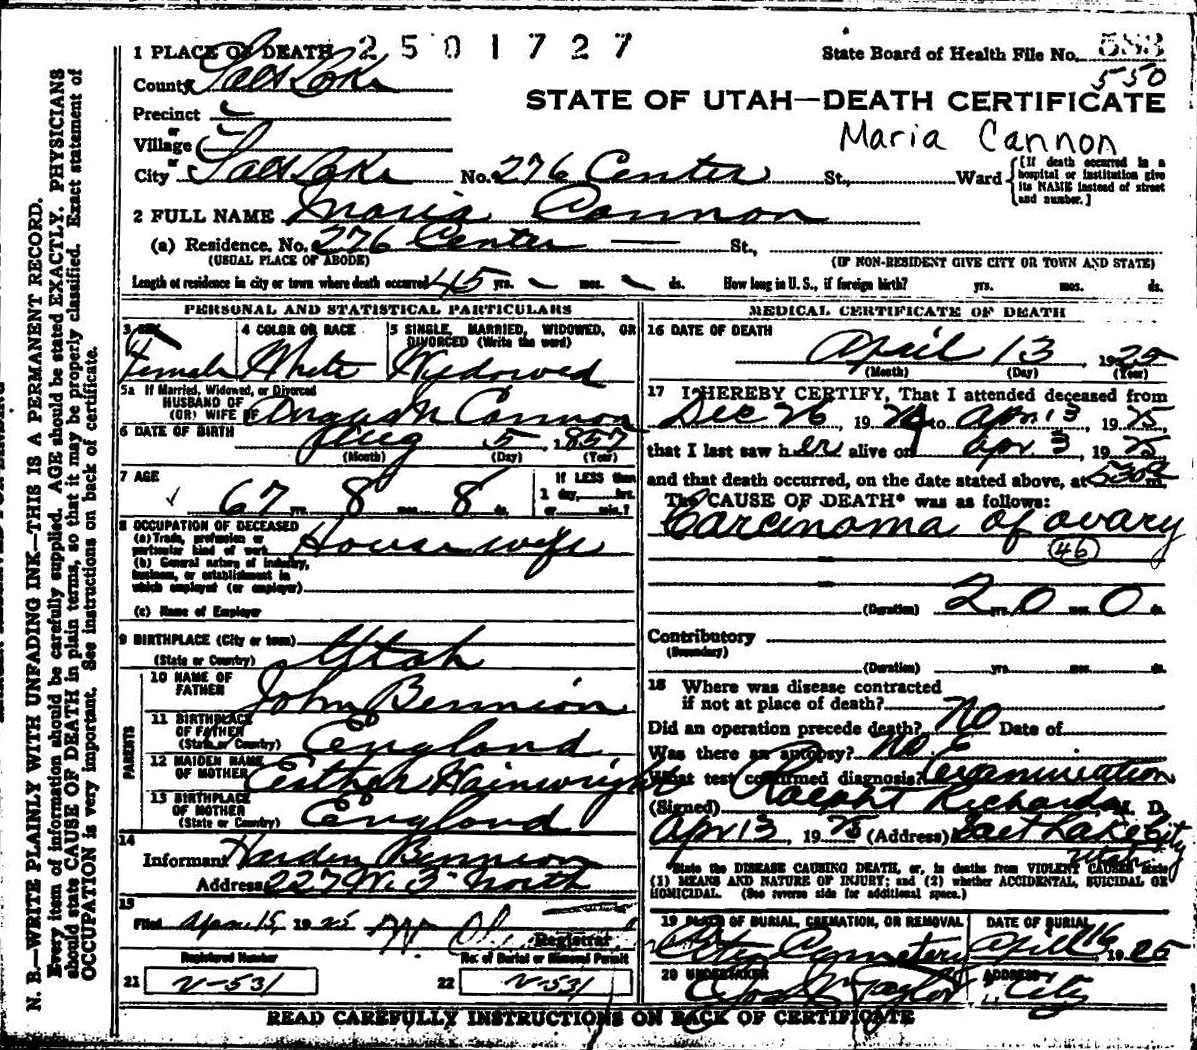 1 PLACE OF DEATH 2 5 0 1 7 2 7
State Board of Health File No. 583
550
County Salt Lake
STATE OF UTAH—DEATH CERTIFICATE
Precinct
or
Village
Maria Cannon
or
City Salt Lake No. 276 Center St., Ward
[If death occurred in a
hospital or institution give
its NAME instead of street
and number.]
2 FULL NAME Maria Cannon
(a) Residence, No. 276 Center St.,
(USUAL PLACE OF ABODE) (IF NON-RESIDENT GIVE CITY OR TOWN AND STATE)
Length of residence in city or town where death occurred 45 yrs. mos. ds. How long in U. S., if foreign birth? yrs. mos. ds.
PERSONAL AND STATISTICAL PARTICULARS
3 SEX 4 COLOR OR RACE 5 SINGLE, MARRIED, WIDOWED, OR
DIVORCED (Write the word)
Female White Widowed
5a If Married, Widowed, or Divorced
HUSBAND OF
(OR) WIFE OF Angus M Cannon
6 DATE OF BIRTH Aug 5, 1857
(Month) (Day) (Year)
7 AGE
67 yrs. 8 mos. 8 ds.
If LESS than
1 day, hrs.
or min.?
8 OCCUPATION OF DECEASED
(a) Trade, profession or
particular kind of work Housewife
(b) General nature of industry,
business, or establishment in
which employed (or employer)
(c) Name of Employer
9 BIRTHPLACE (City or town)
(State or Country) Utah
PARENTS
10 NAME OF
FATHER John Bennion
11 BIRTHPLACE
OF FATHER
(State or Country) England
12 MAIDEN NAME
OF MOTHER Esther Wainwright
13 BIRTHPLACE
OF MOTHER
(State or Country) England
14
Informant Harden Bennion
Address 227 W. 3" North
15
Filed Apr. 15, 1925
Registrar
Registered Number No. of Burial or Removal Permit
21 V-531 22 V-531
MEDICAL CERTIFICATE OF DEATH
16 DATE OF DEATH
April 13, 1925
(Month) (Day) (Year)
17 I HEREBY CERTIFY, That I attended deceased from
Dec 26 19 24 to Apr 13, 1925,
that I last saw her alive on Apr 13, 1925
and that death occurred, on the date stated above, at 530a m.
The CAUSE OF DEATH* was as follows:
Carcinoma of ovary
46
(Duration) 2 yrs. 0 mos. 0 ds.
Contributory
(Secondary)
(Duration) yrs. mos. ds.
18 Where was disease contracted
if not at place of death?
Did an operation precede death? No Date of
Was there an autopsy? No.
What test confirmed diagnosis? Examination
(Signed) Ralph T Richards, M. D.
Apr 13, 1925 (Address) Salt Lake City
Utah
*State the DISEASE CAUSING DEATH, or, in deaths from VIOLENT CAUSES state
(1) MEANS AND NATURE OF INJURY; and (2) whether ACCIDENTAL, SUICIDAL OR
HOMICIDAL. (See reverse side for additional space.)
19 PLACE OF BURIAL, CREMATION, OR REMOVAL DATE OF BURIAL
City Cemetery April 16 1925
20 UNDERTAKER ADDRESS
Taylor City
READ CAREFULLY INSTRUCTIONS ON BACK OF CERTIFICATE
N. B.—WRITE PLAINLY WITH UNFADING INK—THIS IS A PERMANENT RECORD.
Every item of information should be carefully supplied. AGE should be stated EXACTLY. PHYSICIANS
should state CAUSE OF DEATH in plain terms, so that it may be properly classified. Exact statement of
OCCUPATION is very important. See instructions on back of certificate.